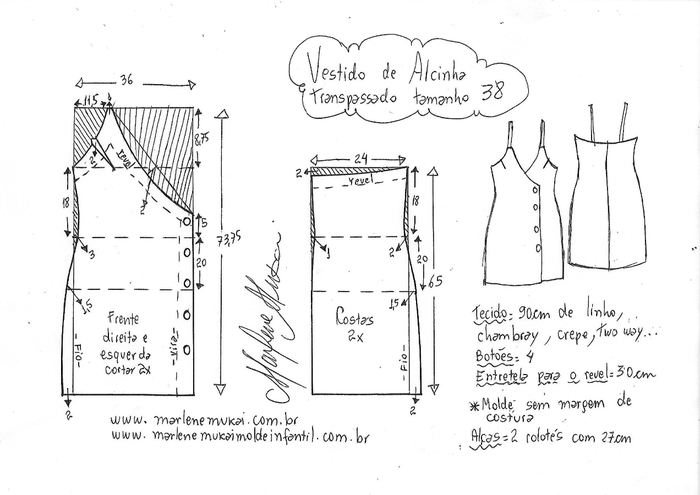 Vestido de Alcinha
transpassado tamanho 38
36
11,5
4
8,75
2
revel
2
18
5
3
20
73,75
1,5
Frente
direita e
esquerda
cortar 2x
Fio
Vira
2
24
2
revel
18
1
2
20
65
1,5
Costas
2x
Fio
2
Marlene Mukai
www. marlenemukai.com.br
www. marlenemukaimoldeinfantil.com.br
Tecido= 90cm de linho,
chambray, crepe, two way...
Botões= 4
Entretela para o revel= 30cm
*Molde sem margem de
costura
Alças= 2 rolotés com 27cm